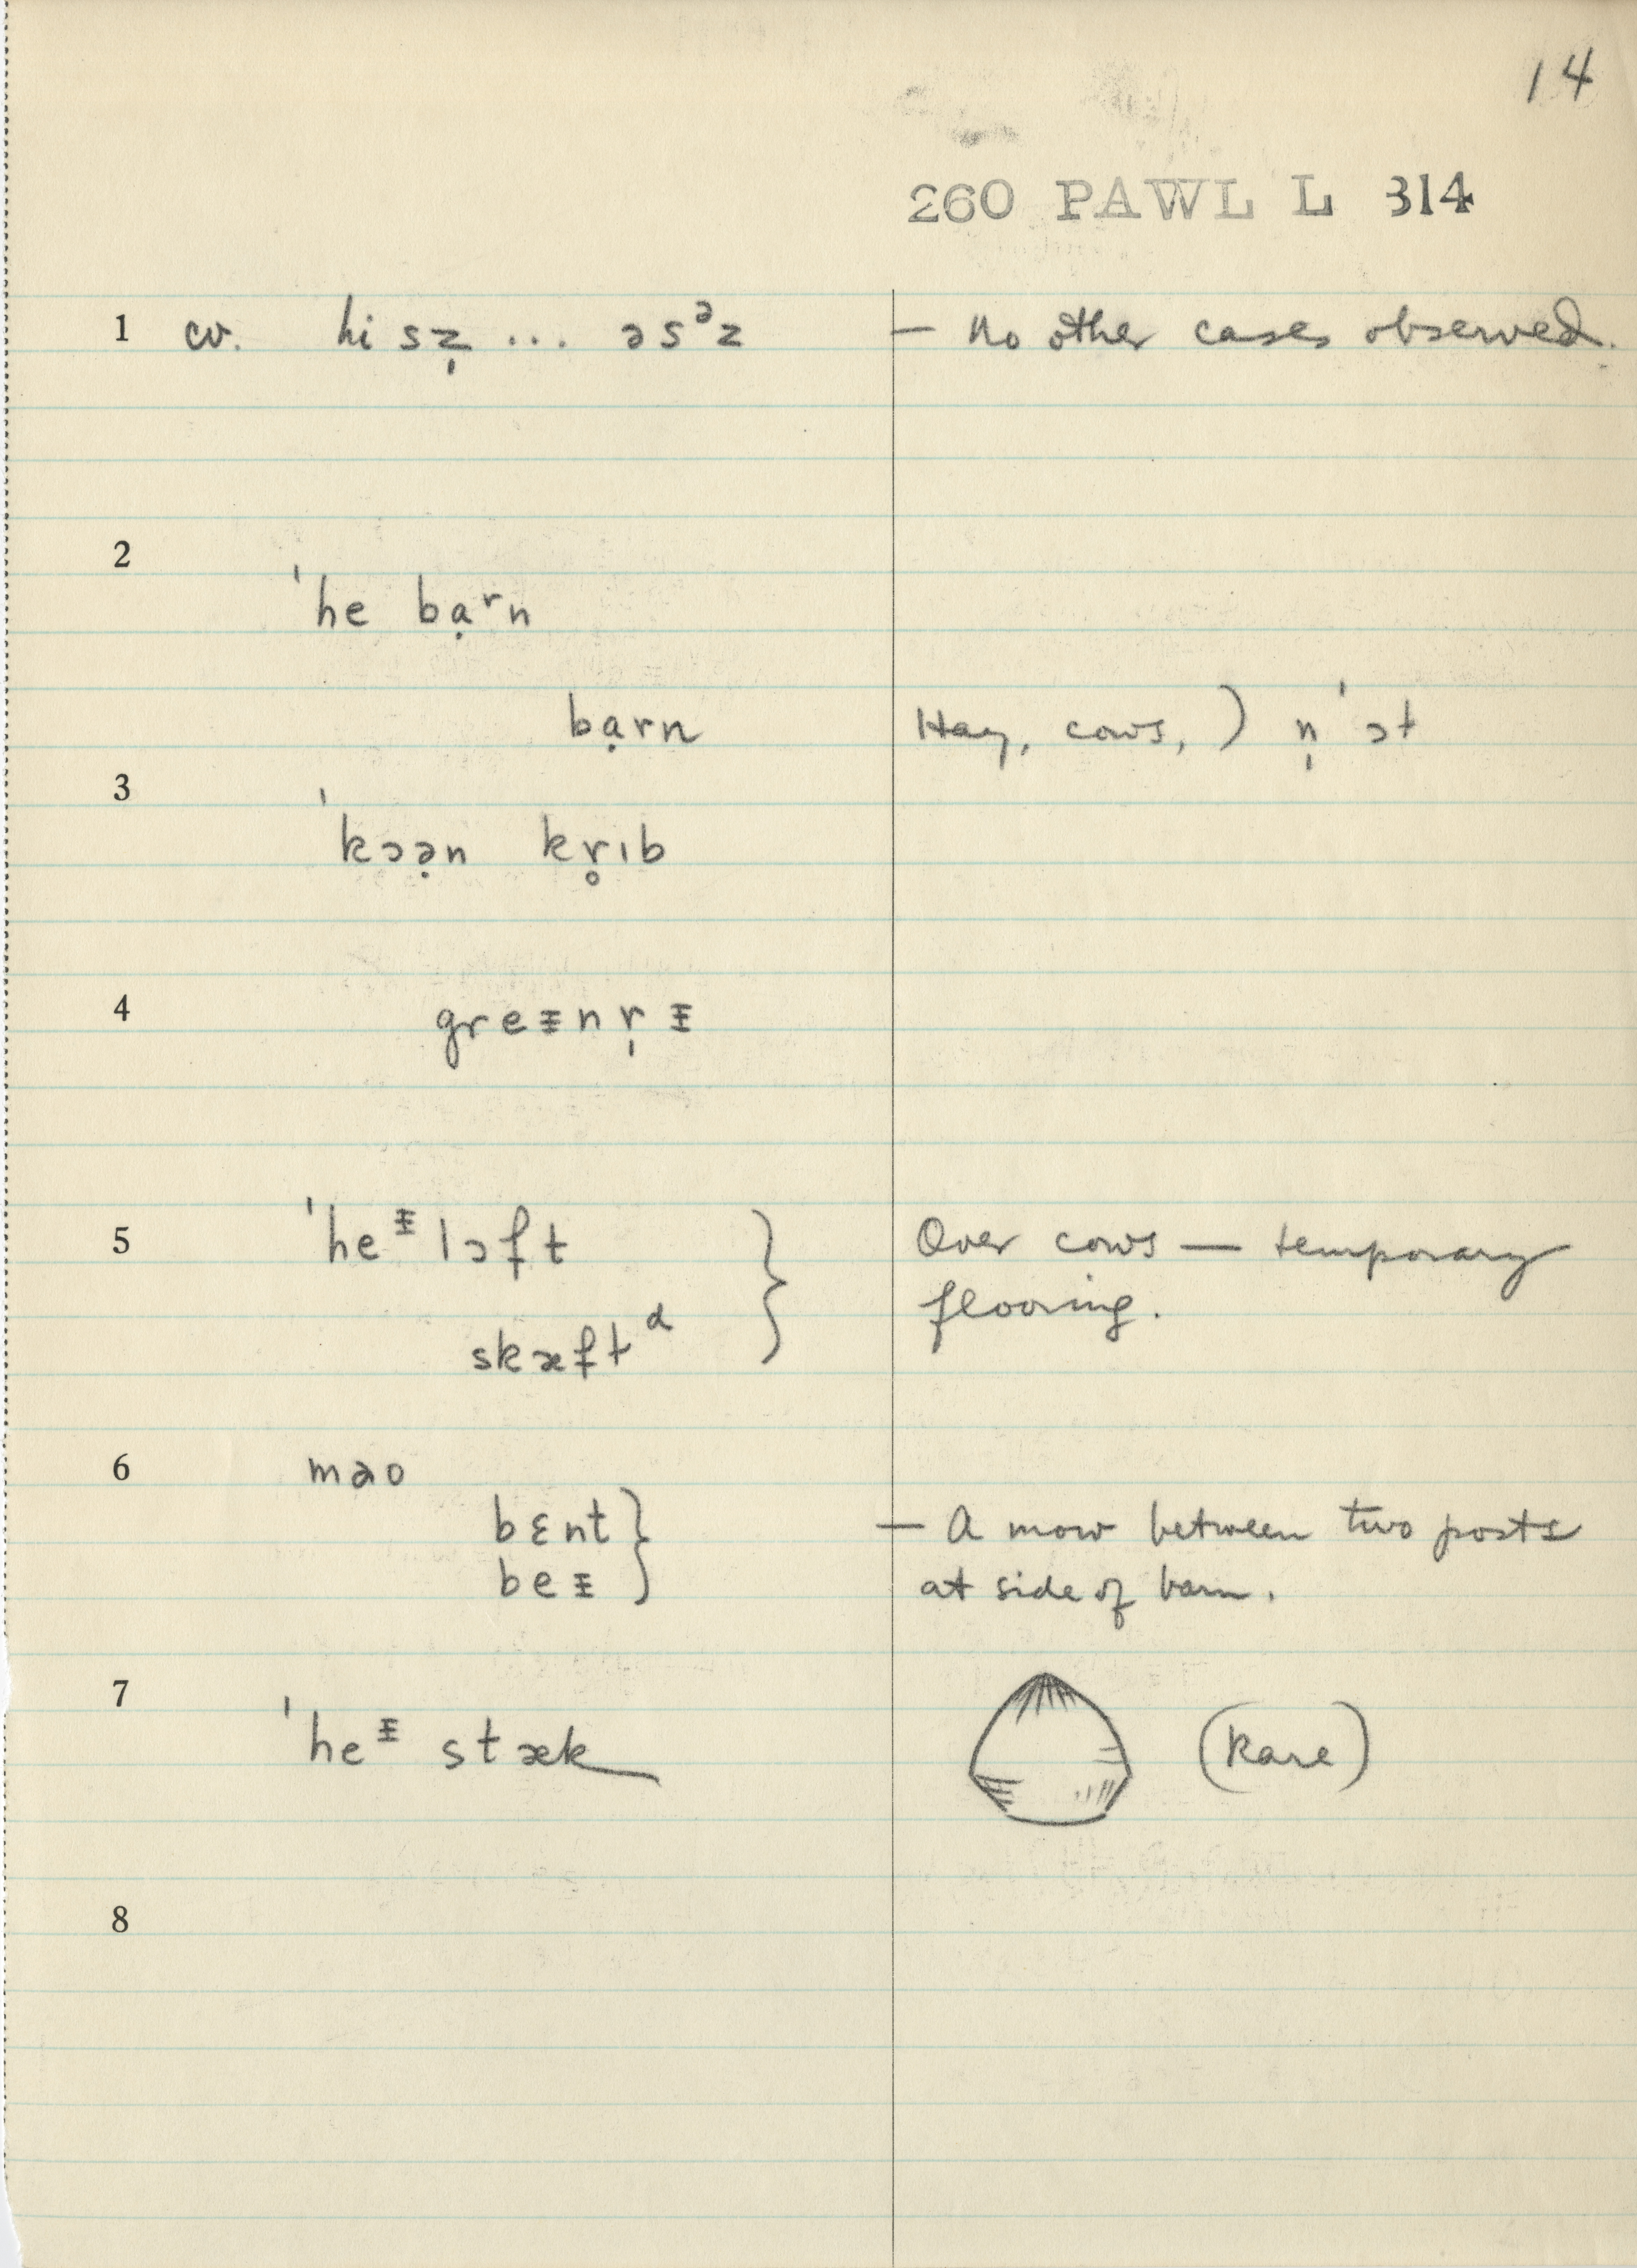 14
260 PAWL L 314
1 cv. hi sz̩ ... əsᵊz — No other cases observed.
2
ˈhe bạʳn
bạrn Hay, cows, ) n̩ ˈɔt
3
ˈkɔə̣n kr̥ɪb
4 greᵻnr̩ᵻ
5 ˈheᵻlɔft } Over cows — temporary
flooring.
skæftᵅ
6 məo
bɛnt } — A mow between two posts
beᵻ at side of barn.
7
ˈheᵻ stæk (Rare)
8